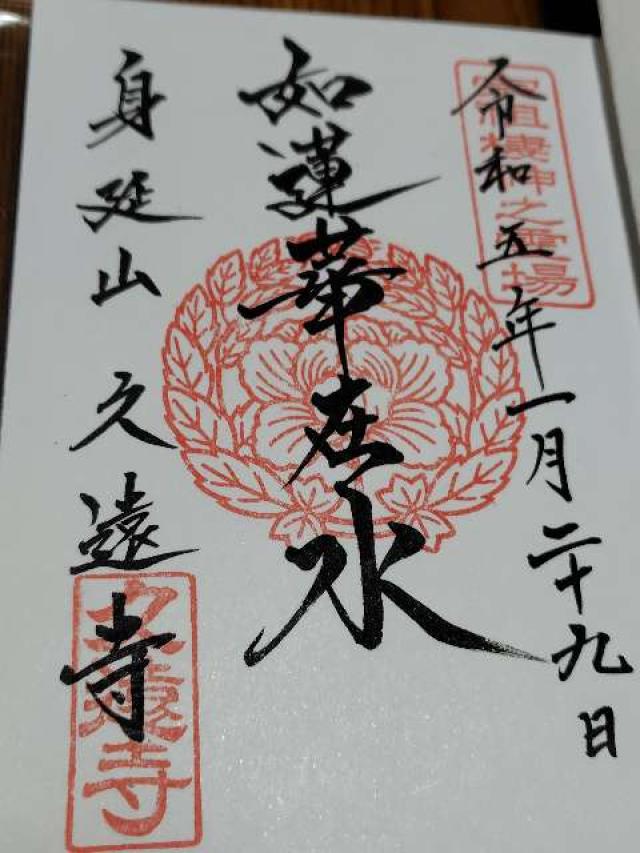 令和五年一月二十九日
宗祖棲神之霊場
如蓮華在水
身延山久遠寺
久遠寺